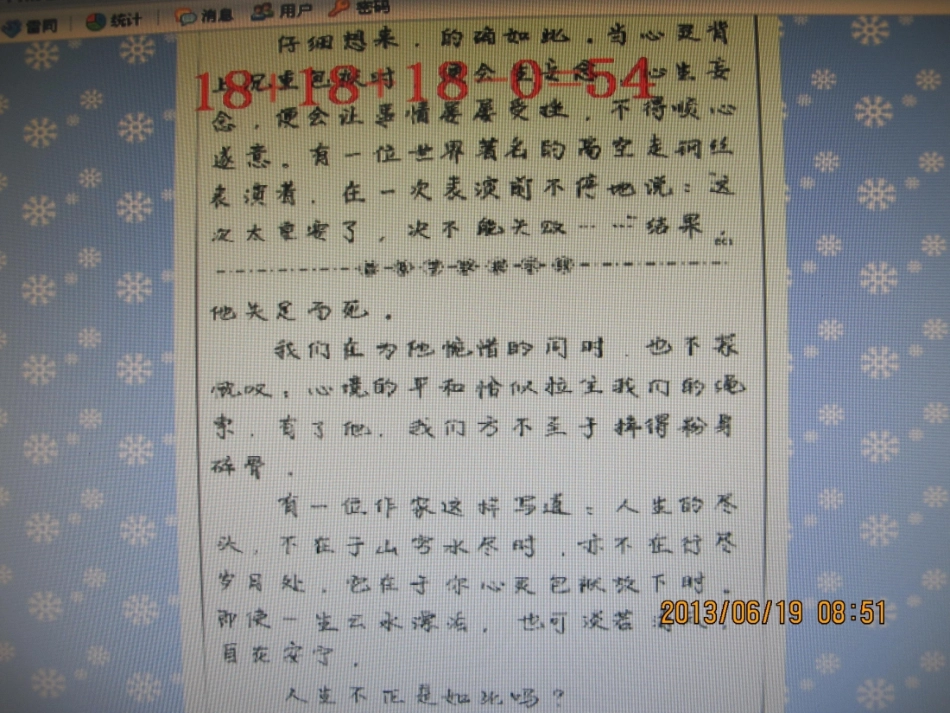 雷同 统计 消息 用户 密码
仔细想来，的确如此。当心灵背
18+18+18-0=54
上沉重包袱时 便会生妄念 心生妄
念，便会让事情屡屡受挫，不得顺心
遂意。有一位世界著名的高空走钢丝
表演者，在一次表演前不停地说：这
次太重要了，次不能失败……结果，
他失足而死。
我们在为他惋惜的同时，也不禁
慨叹：心境的平和恰似拉住我们的绳
索，有了他，我们方不至于摔得粉身
碎骨。
有一位作家这样写道：人生的尽
头，不在于山穷水尽时，亦不在行尽
岁月处，它在于你心灵包袱放下时。
即使一生云水漂泊，也可淡若
自在安宁。
2013/06/19 08:51
人生不正是如此吗？